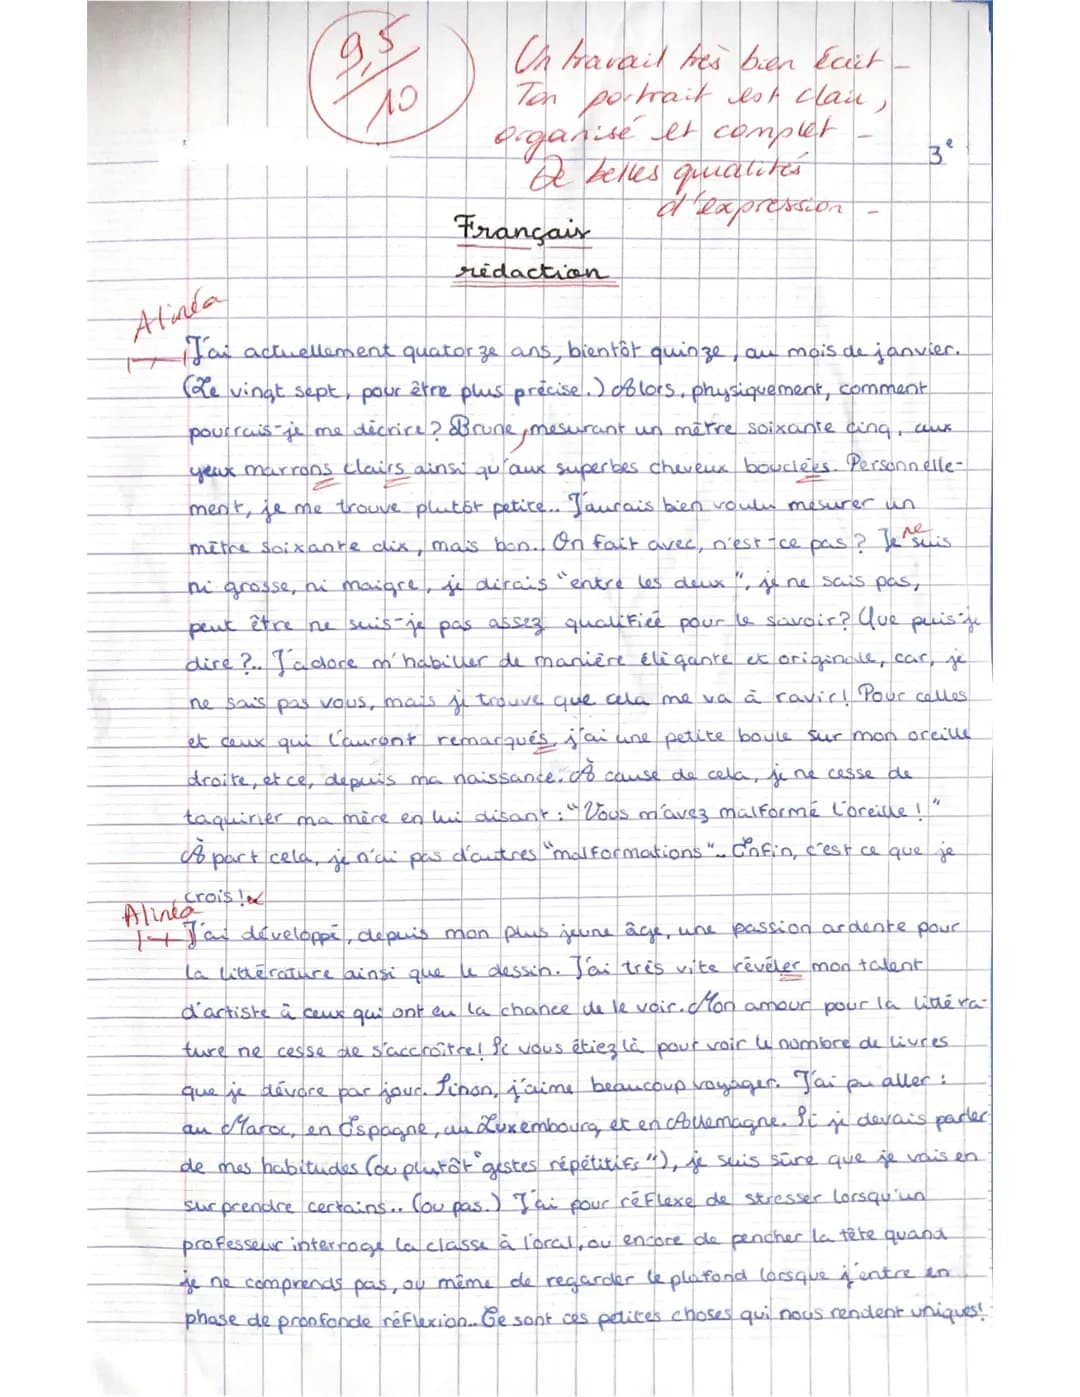 9,5
10
Un travail très bien écrit -
Ton portrait est clair,
organisé et complet -
De belles qualités
d'expression -
3e
Français
rédaction
Alinéa
J'ai actuellement quatorze ans, bientôt quinze, au mois de janvier.
(Le vingt sept, pour être plus précise.) Alors, physiquement, comment
pourrais-je me décrire ? Brune, mesurant un mètre soixante cinq, aux
yeux marrons clairs ainsi qu'aux superbes cheveux bouclées. Personnelle-
ment, je me trouve plutôt petite.. J'aurais bien voulu mesurer un
mètre soixante dix, mais bon.. On fait avec, n'est-ce pas ? Je ne suis
ni grosse, ni maigre, je dirais "entre les deux", je ne sais pas,
peut être ne suis-je pas assez qualifiée pour le savoir ? Que puis-je
dire ?.. J'adore m'habiller de manière élégante et originale, car, je
ne sais pas vous, mais je trouve que cela me va à ravir! Pour celles
et ceux qui l'auront remarqués, j'ai une petite boule sur mon oreille
droite, et ce, depuis ma naissance. À cause de cela, je ne cesse de
taquiner ma mère en lui disant : "Vous m'avez malformé l'oreille ! "
À part cela, je n'ai pas d'autres "malformations".. Enfin, c'est ce que je
crois !
Alinéa
J'ai développé, depuis mon plus jeune âge, une passion ardente pour
la littérature ainsi que le dessin. J'ai très vite révéler mon talent
d'artiste à ceux qui ont eu la chance de le voir. Mon amour pour la littéra-
ture ne cesse de s'accroître! Si vous étiez là pour voir le nombre de livres
que je dévore par jour. Sinon, j'aime beaucoup voyager. J'ai pu aller :
au Maroc, en Espagne, au Luxembourg et en Allemagne. Si je devais parler
de mes habitudes (ou plutôt "gestes répétitifs"), je suis sûre que je vais en
surprendre certains.. (ou pas.) J'ai pour réflexe de stresser lorsqu'un
professeur interroge la classe à l'oral, ou encore de pencher la tête quand
je ne comprends pas, ou même de regarder le plafond lorsque j'entre en
phase de pronfonde réflexion.. Ce sont ces petites choses qui nous rendent uniques!